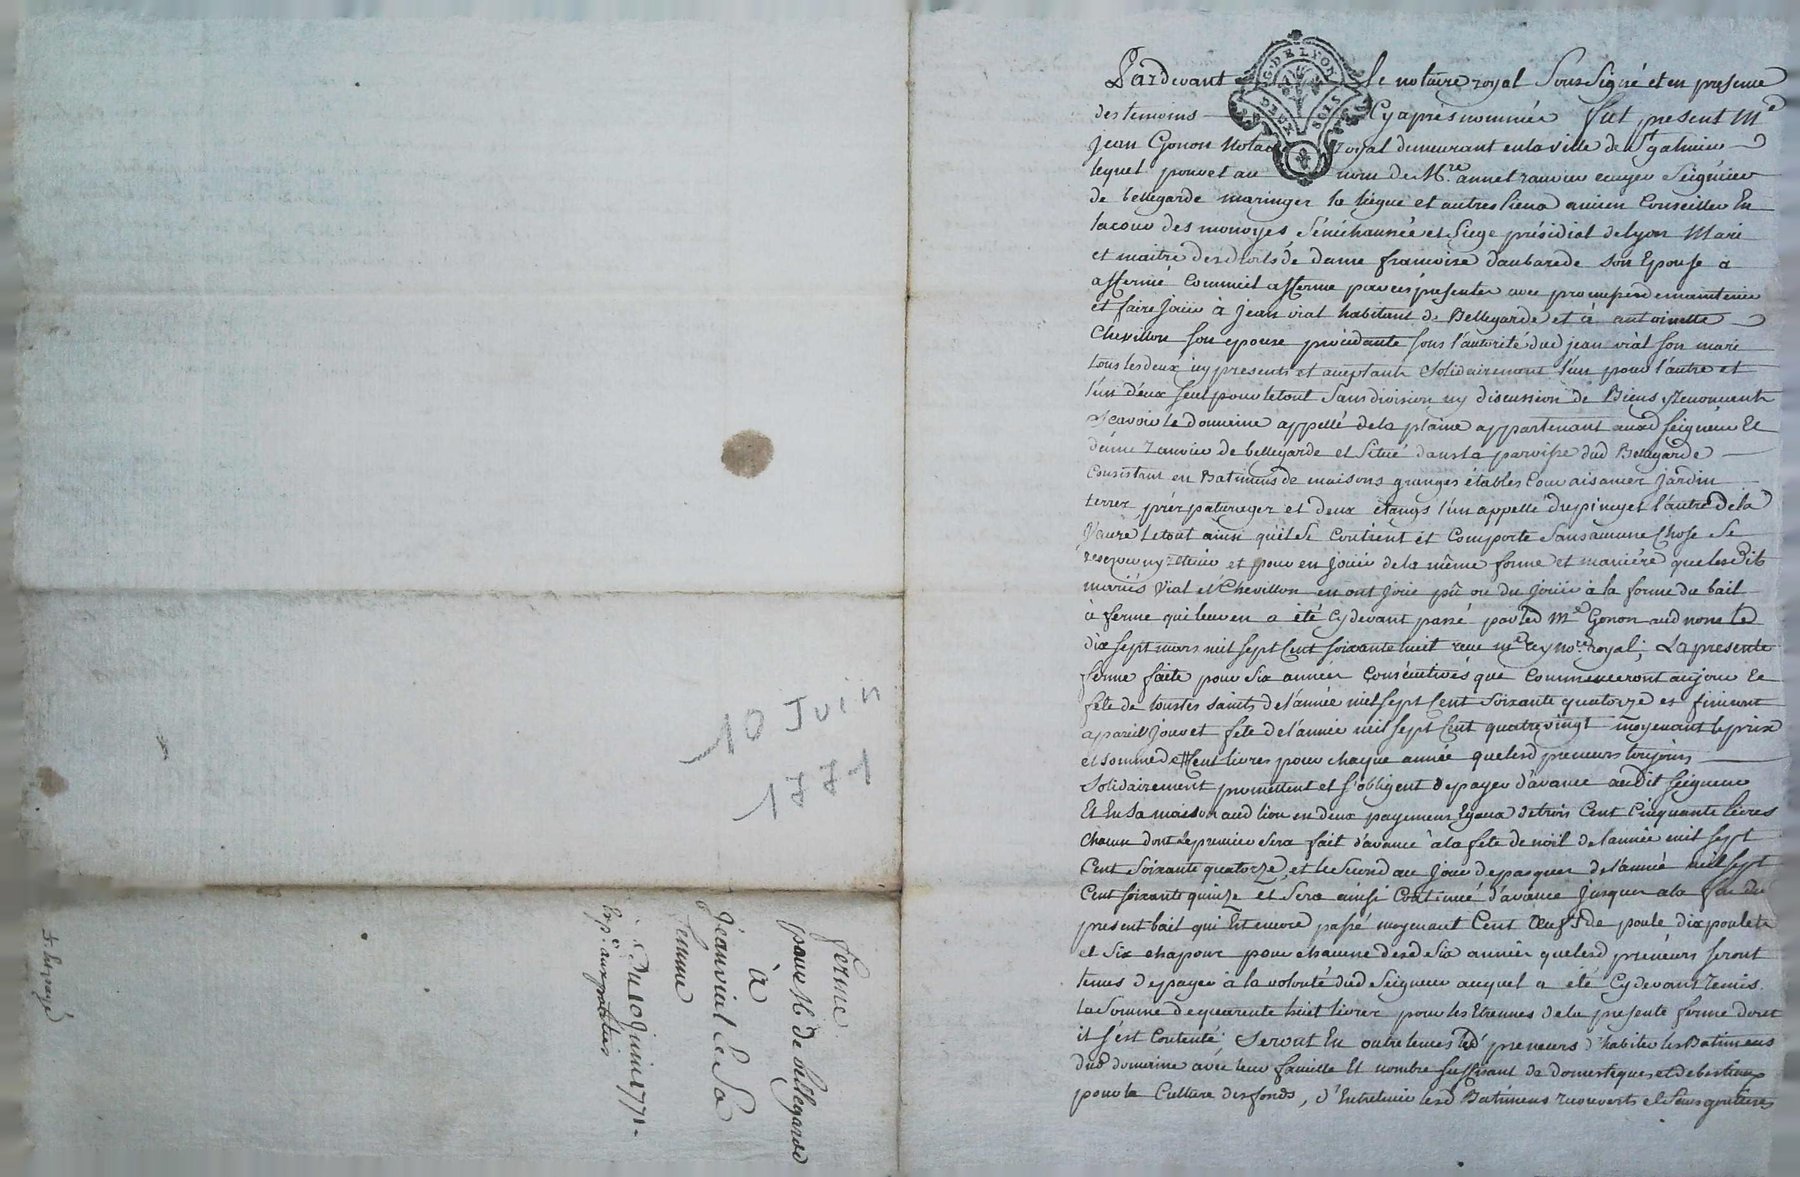 10 Juin
1771
ferme
pour Mr de bellegarde
à
Jean vial & Sa
femme
Du 10 Juin 1771.
Exp.on aux parties
G. DE LYON
DEUX SOLS
Pardevant le notaire royal Sous Signé et en presence
des temoins Cy après nommés fut present Me
Jean Gonon Notaire royal demeurant en la ville de St galmier
lequel pour et au nom de Mre annet ranvier ecuyer Seigneur
de bellegarde maringes la liegue et autres lieux ancien Conseiller En
la cour des monoyes Sénéchaussée et Siege présidial de Lyon Mari
et maitre des droits de dame francoise daubarede son Epouse a
affermé Comme il afferme par ces presentes avec promesse de maintenir
et faire Jouir à Jean vial habitant de Bellegarde et à antoinette
Chevillon son epouse procédante sous l'autorité dud jean vial son mari
tous les deux icy presents et acceptants Solidairement l'un pour l'autre et
l'un d'eux seul pour le tout Sans division ny discussion de Biens, Renonçants
Scavoir le domaine appellé de la plaine appartenant auxd Seigneur Et
dame ranvier de bellegarde et Situé dans la paroisse dud Bellegarde
Consistant en Batimens de maisons granges étables Cour aisances Jardin
terres, prés paturages et deux étangs l'un appellé et l'autre de la
le tout ainsi qu'il Se Contient et Comporte Sans aucune Chose Se
reserver ny retenir et pour en Jouir de la même forme et maniére que lesdits
mariés Vial et Chevillon en ont Joui pû ou du Jouir à la forme du bail
a ferme qui leur en a été Cy devant passé par led Me Gonon aud nom le
dix Sept mars mil Sept Cent soixante huit recu me Rey nore royal; La presente
ferme faite pour Six années Consécutives que Commenceront au jour Et
fête de toutes saints de l'année mil Sept Cent Soixante quatorze et finiront
a pareil Jour et fête de l'année mil Sept Cent quatrevingt moyenant le prix
et somme de sept Cent livres pour chaque année que lesd preneurs toujours
Solidairement promettent et S'obligent de payer d'avance audit Seigneur
Et En Sa maison aud lieu en deux payemens Egaux de trois Cent Cinquante livres
chacun dont le premier Sera fait d'avance à la fête de noël de l'année mil Sept
Cent Soixante quatorze, et le Second au Jour de paques de l'année mil Sept
Cent Soixante quinze et Sera ainsi Continué d'avance Jusques a la fin du
present bail qui Est encore passé moyenant Cent Œufs de poule dix poulets
et Six chapons pour chacune desd Six années que lesd preneurs seront
tenus de payer à la volonté dud Seigneur auquel a été Cy devant remis
la Somme de quarente huit livres pour les Etrennes de la presente ferme dont
il s'est Contenté; Seront En outre tenus led preneurs d'habiter les Batimens
dud domaine avec leur famille Et nombre suffisant de domestiques et de bestiaux
pour la Culture des fonds, d'Entretenir lesd Batimens recouverts et Sans goutieres